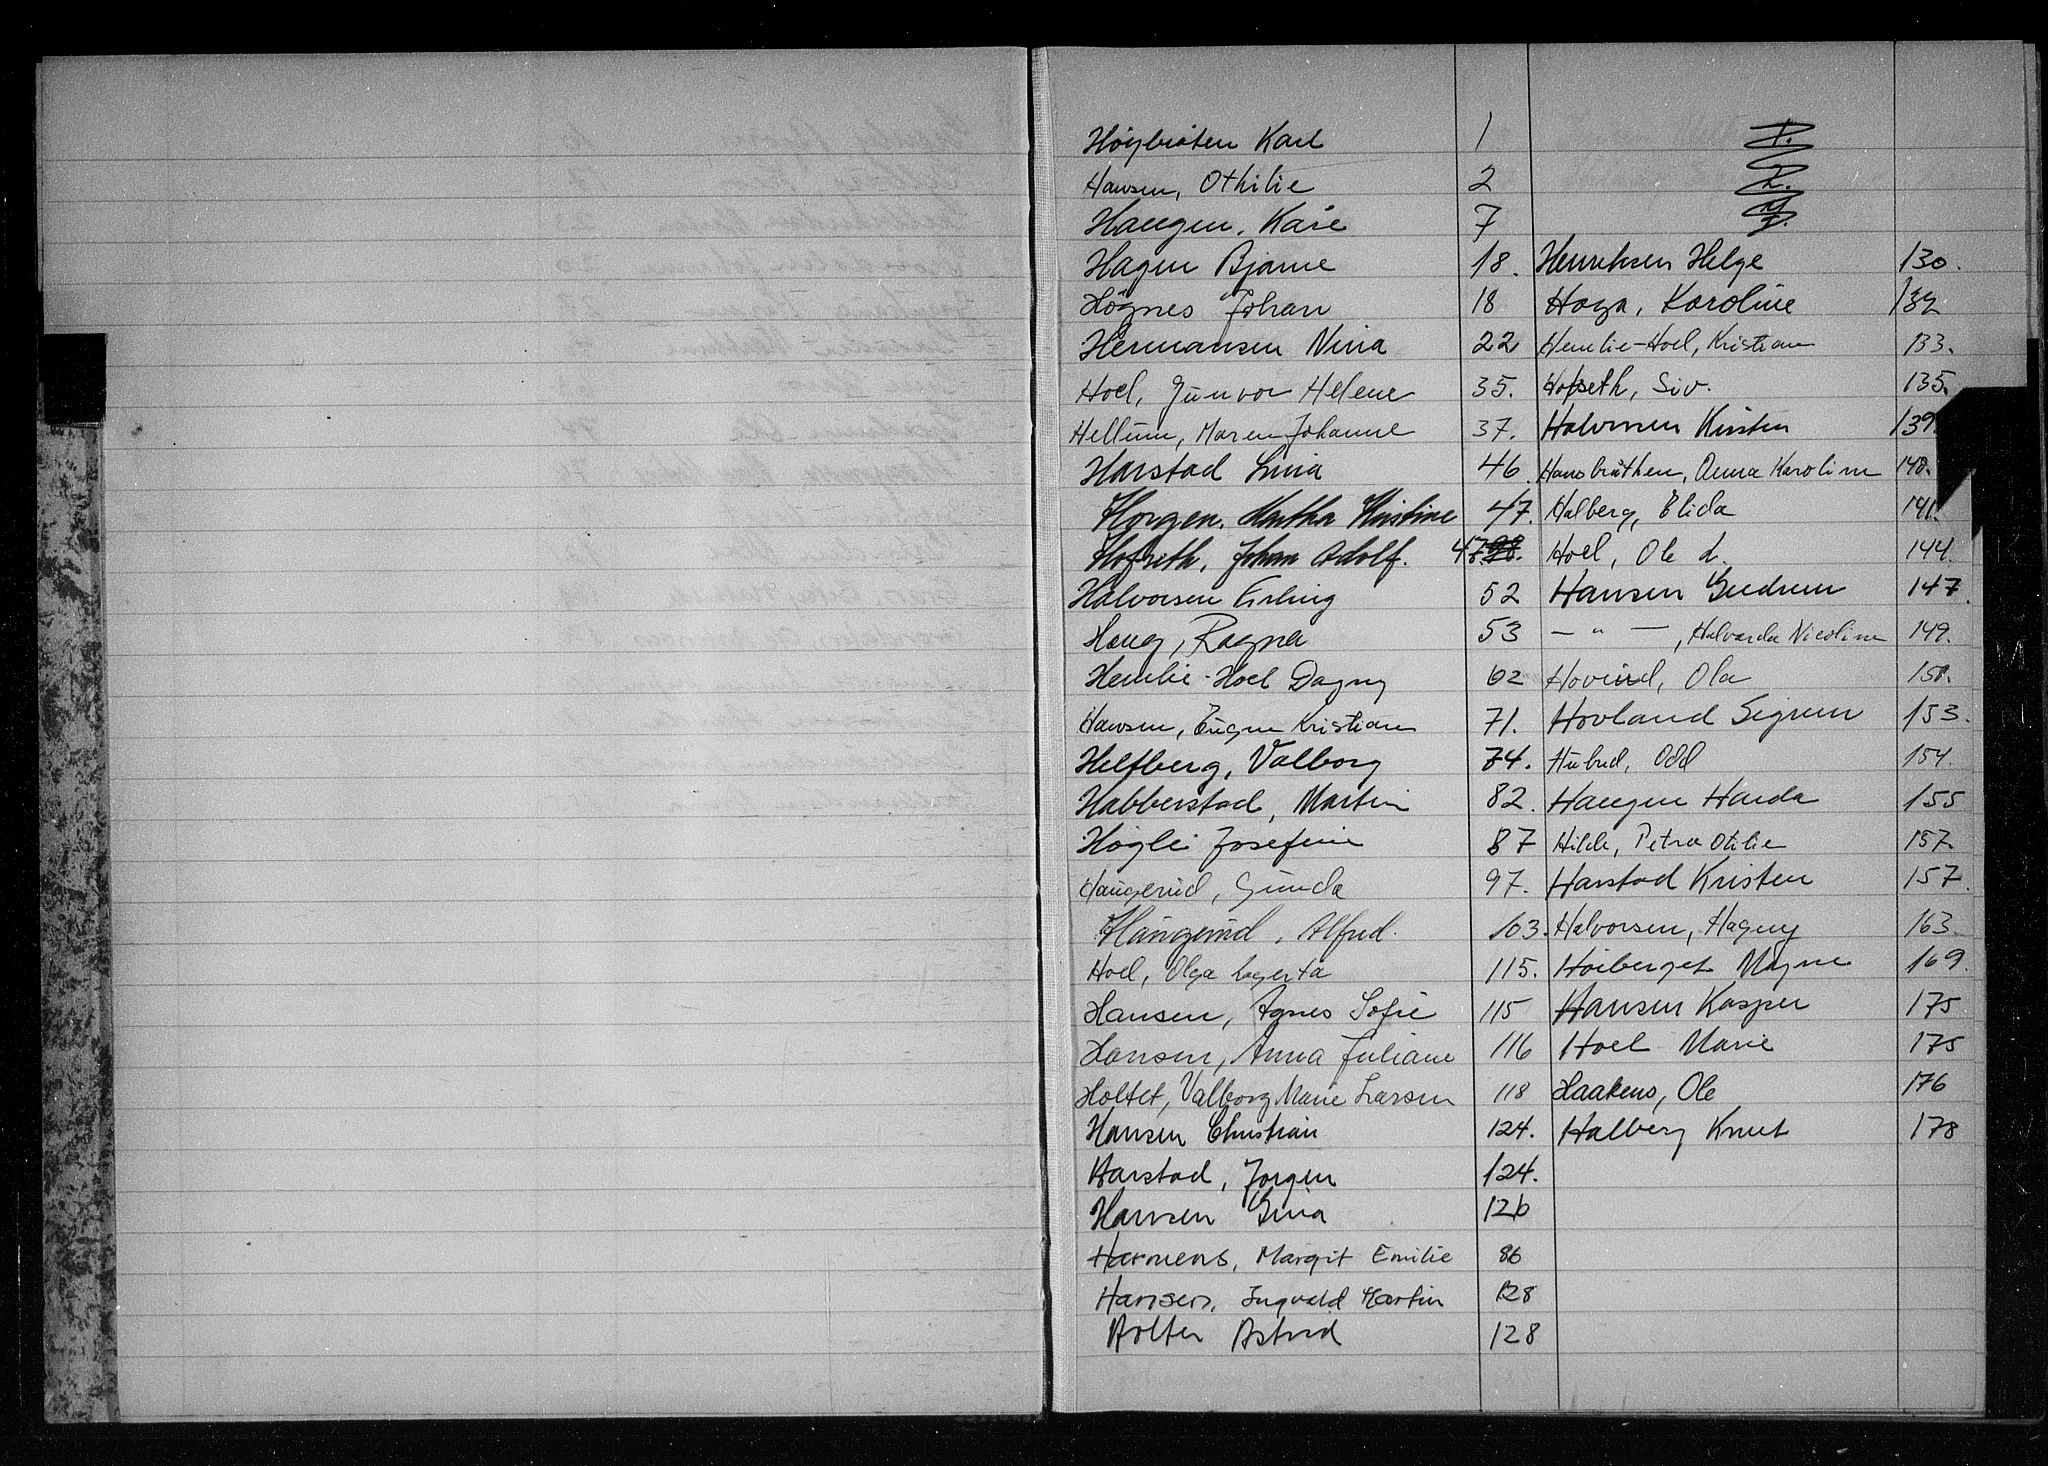 Høybråten Karl 1
Hansen, Othilie 2
Haugen, Kåre 7
Hagen Bjarne 18.
Høgnes Johan 18
Hermansen Nina 22
Hoel, Gunvor Helene 35.
Hellum, Maren Johanne 37.
Harstad Lina 46
Horgen, Martha Kristine 47.
Hofseth, Johan Adolf. 47
Halvorsen Erling 52
Haug, Ragna 53
Hemlie-Hoel Dagny 62
Hansen, Eugen Kristian 71.
Helfberg, Valborg 74.
Habberstad, Martin 82.
Høgli Josefine 87
Haugerud, Gunda 97.
Haugerud, Alfred. 103.
Hoel, Olga Lagerta 115.
Hansen, Agnes Sofie 115
Hansen, Anna Juliane 116
Holtet, Valborg Marie Larsen 118
Hansen Christian 124.
Harstad, Jørgen 124.
Hansen Gina 126
Harmens, Margit Emilie 86
Hansen, Ingvald Martin 128
Holter Astrid 128
1.
2.
7.
Henriksen Helge 130.
Haga, Karoline 132
Hemlie-Hoel, Kristian 133.
Hofseth, Siv. 135.
Halvorsen Kirsten 139.
Hansbråthen, Anna Karoline 140.
Halberg, Elida 141.
Hoel, Ole L. 144.
Hansen Gudrun 147.
— " —, Halvarda Nicoline 149.
Hovind, Ola 150.
Hovland Sigrun 153.
Hubred, Odd 154.
Haugen Harda 155
Hilde, Petra Otilie 157.
Harstad Kristen 157.
Halvorsen, Hagny 163
Høiberget Magne 169.
Hansen Kasper 175
Hoel Marie 175
Haakens, Ole 176
Halberg Knut 178